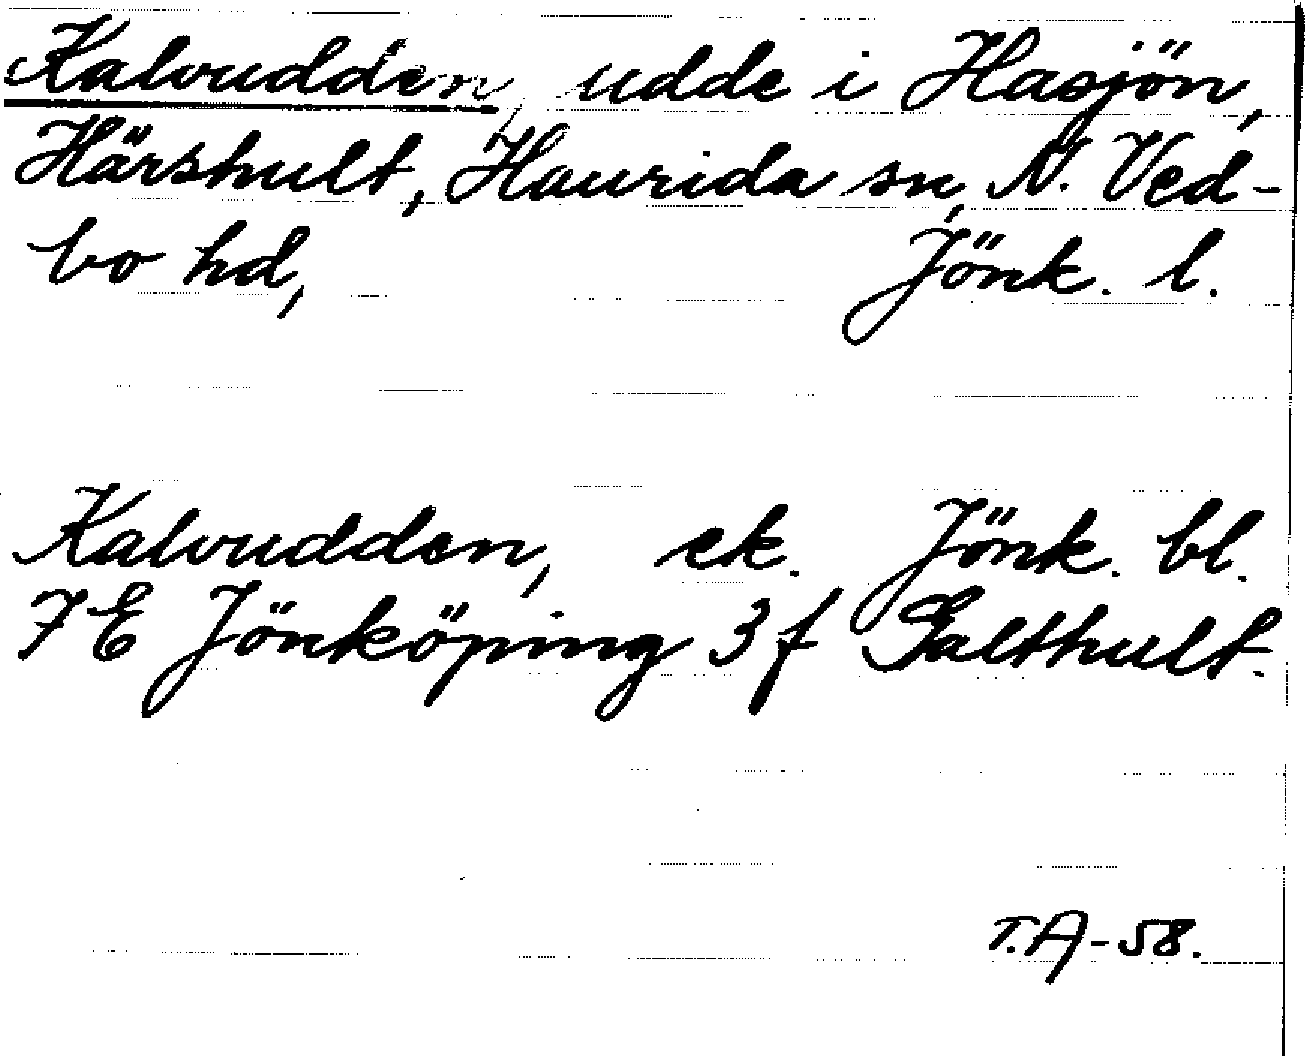 Kalvudden, udde i Hasjön,
Härshult, Haurida sn, N. Ved-
bo hd, Jönk. l.
Kalvudden, ek. Jönk. bl.
7E Jönköping 3f Galthult.
T.A-58.